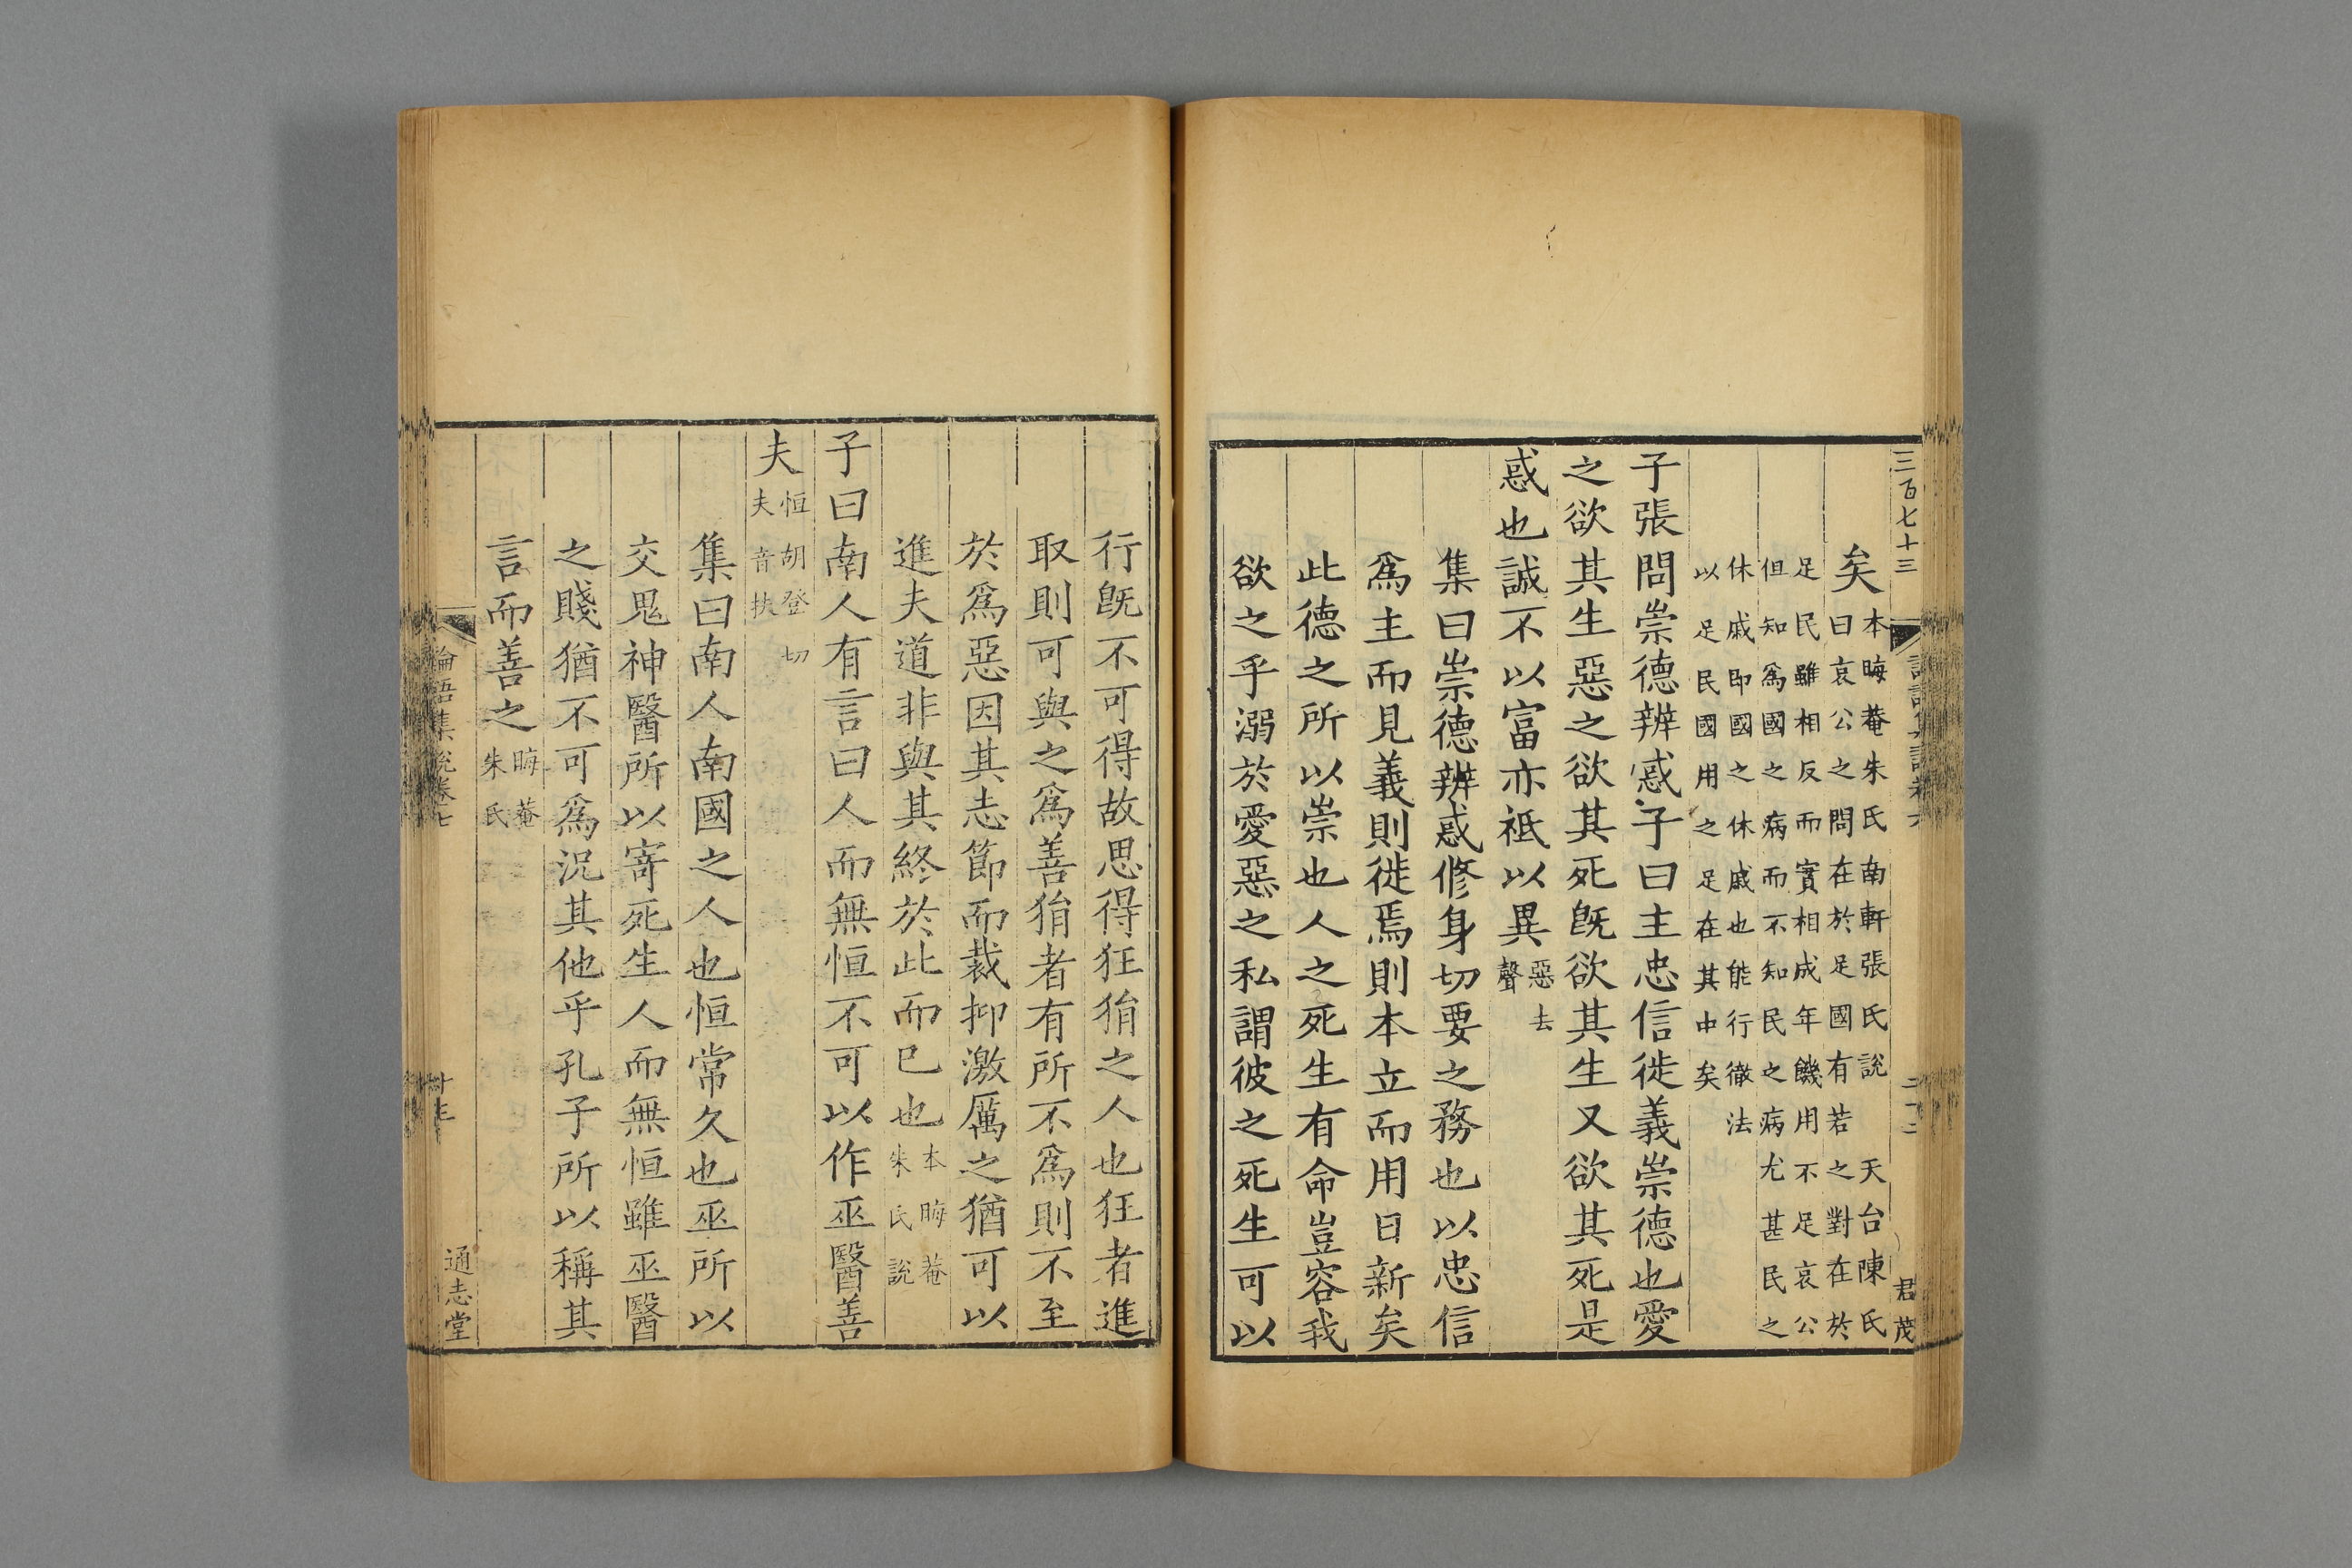 三百七十三
君茂
矣本晦菴朱氏南軒張氏說天台陳氏
曰哀公之問在於足國有若之對在於
足民雖相反而實相成年饑用不足哀公
但知爲國之病而不知民之病尤甚民之
休戚即國之休戚也能行徹法
以足民國用之足在其中矣
子張問崇德辨惑子曰主忠信徙義崇德也愛
之欲其生惡之欲其死旣欲其生又欲其死是
惑也誠不以富亦祗以異惡去
聲
集曰崇德辨惑修身切要之務也以忠信
爲主而見義則徙焉則本立而用日新矣
此德之所以崇也人之死生有命豈容我
欲之乎溺於愛惡之私謂彼之死生可以
行旣不可得故思得狂狷之人也狂者進
取則可與之爲善狷者有所不爲則不至
於爲惡因其志節而裁抑激厲之猶可以
進夫道非與其終於此而已也本晦菴
朱氏說
子曰南人有言曰人而無恒不可以作巫醫善
夫恒胡登切
夫音扶
集曰南人南國之人也恒常久也巫所以
交鬼神醫所以寄死生人而無恒雖巫醫
之賤猶不可爲況其他乎孔子所以稱其
言而善之晦菴
朱氏
論語集說卷七
十三
通志堂